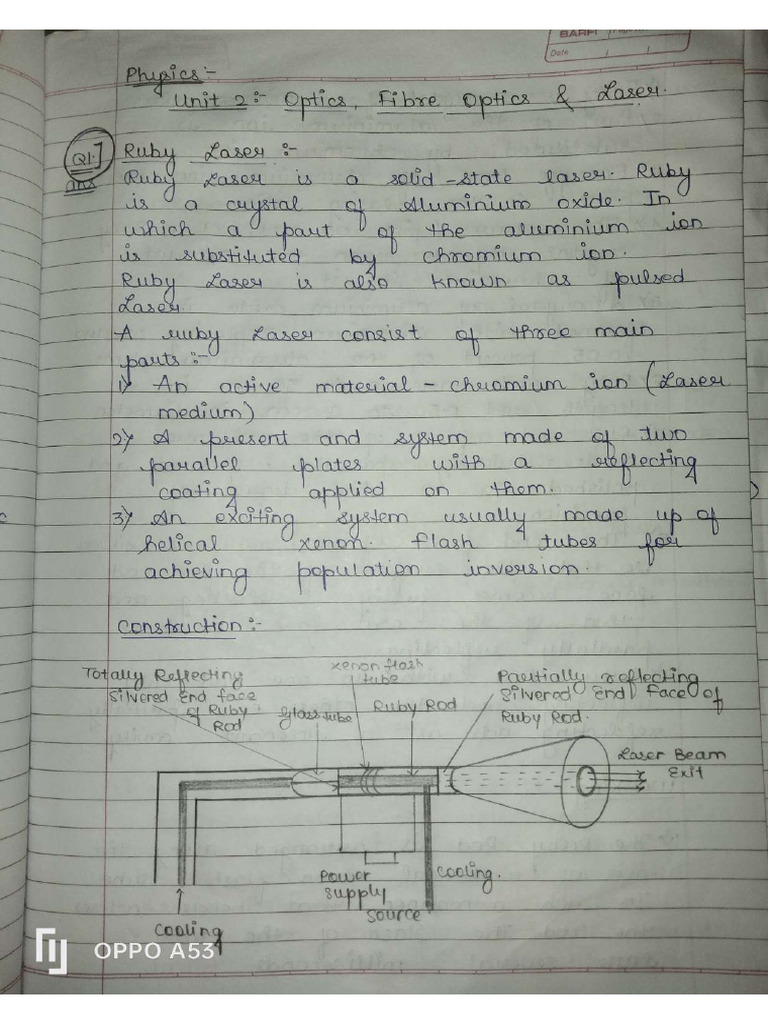 BARFI
Date / /
Physics :-
Unit 2 :- Optics, Fibre Optics & Laser.
Q1.] Ruby Laser :-
ans Ruby Laser is a solid-state laser. Ruby
is a crystal of Aluminium oxide. In
which a part of the aluminium ion
is substituted by chromium ion.
Ruby Laser is also known as pulsed
Laser.
A ruby Laser consist of three main
parts :-
1) An active material - chromium ion (Laser
medium)
2) A present and system made of two
parallel plates with a reflecting
coating applied on them.
3) An exciting system usually made up of
helical xenon. flash tubes for
achieving population inversion.
Construction :-
Totally Reflecting
Silvered End face
of Ruby
Rod
Glass tube
xenon flash
tube
Ruby Rod
Partially reflecting
Silvered End Face of
Ruby Rod.
Laser Beam
Exit
Power
supply
source
cooling.
cooling
OPPO A53